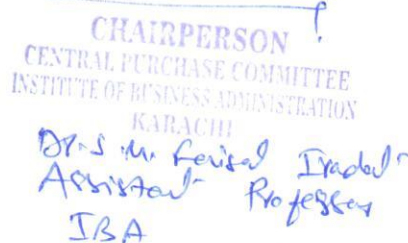 CHAIRPERSON
CENTRAL PURCHASE COMMITTEE
INSTITUTE OF BUSINESS ADMINISTRATION
KARACHI
Dr. S. M. Faisal Iradat
Assistant Professor
IBA